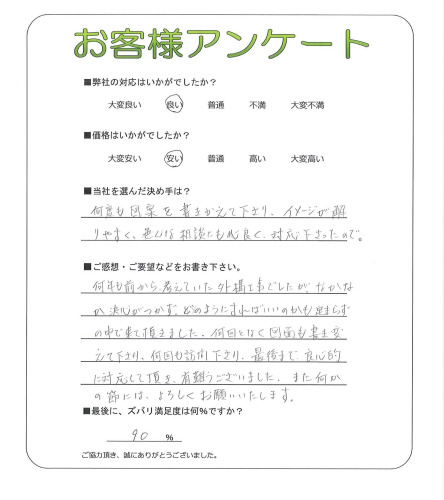 お客様アンケート
■弊社の対応はいかがでしたか?
大変良い 良い 普通 不満 大変不満
■価格はいかがでしたか?
大変安い 安い 普通 高い 大変高い
■当社を選んだ決め手は?
何度も図案を書きかえて下さり、イメージが解
りやすく、色んな相談にも心良く、対応下さったので。
■ご感想・ご要望などをお書き下さい。
何年も前から、考えていた外構工事でしたが、なかな
か決心がつかず、どのようにすればいいのかも定まらず
の中で来て頂きました。何回となく図面も書き変
えて下さり、何回も訪問下さり、最後まで良心的
に対応して頂き、有難うございました。また何か
の節には、よろしくお願いいたします。
■最後に、ズバリ満足度は何%ですか?
90 %
ご協力頂き、誠にありがとうございました。